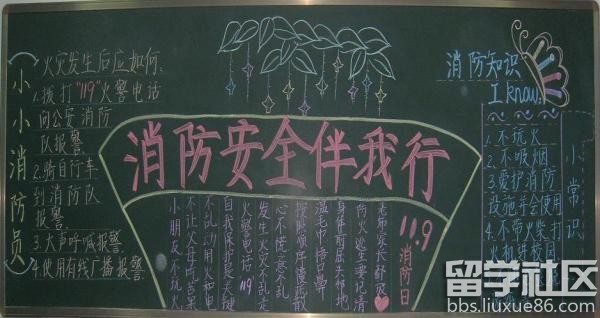 小小消防员
火灾发生后应如何:
1.拨打"119"火警电话
向公安消防
队报警
2.骑自行车
到消防队
报警
3.大声呼喊报警
4.使用有线广播报警
消防安全伴我行
11.9
消防日
小朋友不玩火
不让父母吃苦果
不乱动用火和电
自我保护是关键
火警电话119
发生火灾不乱走
心不慌意不乱
湿毛巾捂口鼻
身体前屈头部地
防火逃生要记清
老师家长都夸
消防知识
I know:
1.不玩火
2.不吸烟
3.爱护消防
设施并会使用
4.不带火柴、打
火机等校园
小常识
留学社区
bbs.liuxue86.com